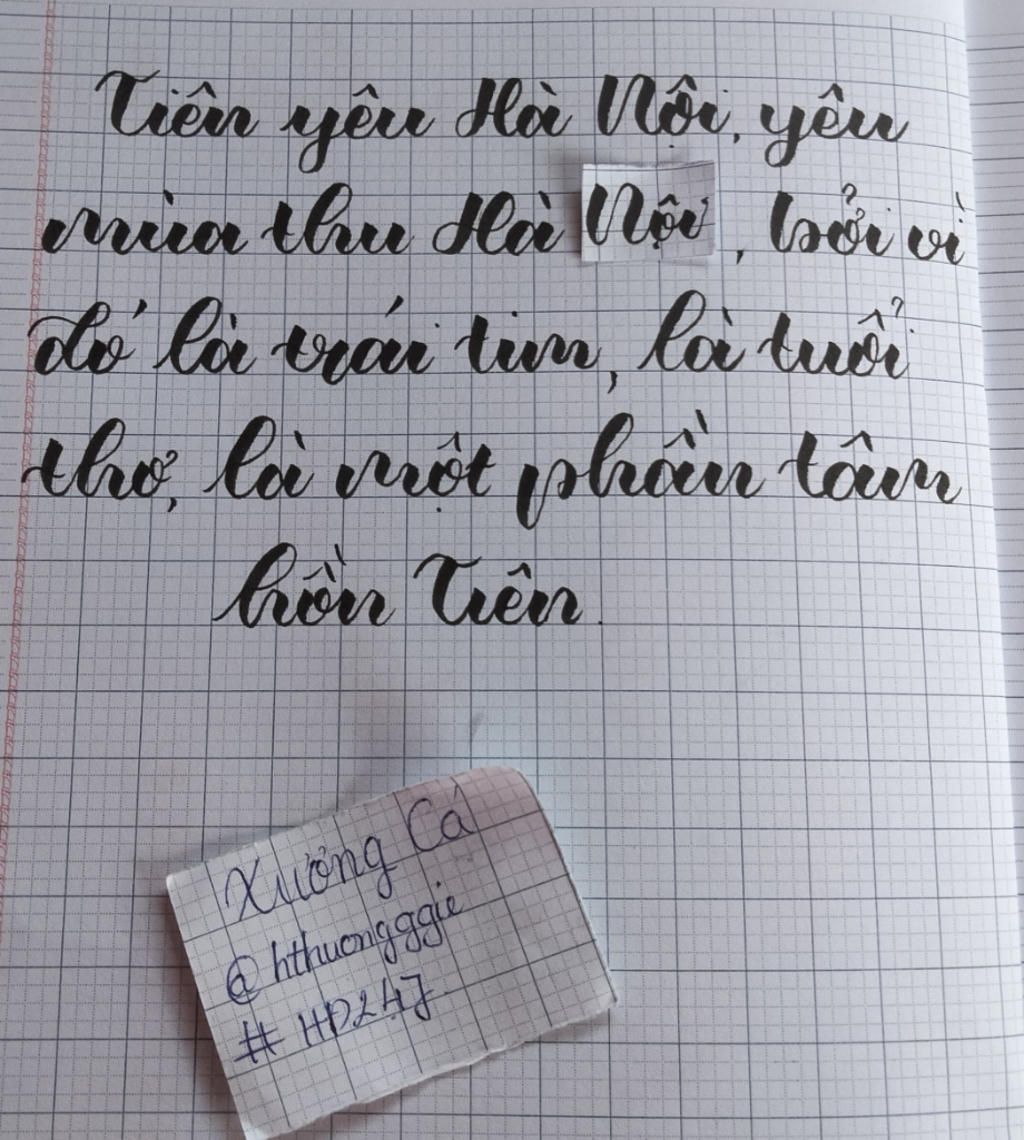 Tiên yêu Hà Nội, yêu
mùa thu Hà Nội, bởi vì
đó là trái tim, là tuổi
thơ, là một phần tâm
hồn Tiên.
Xương Cá
@hthuongggie
#HD247